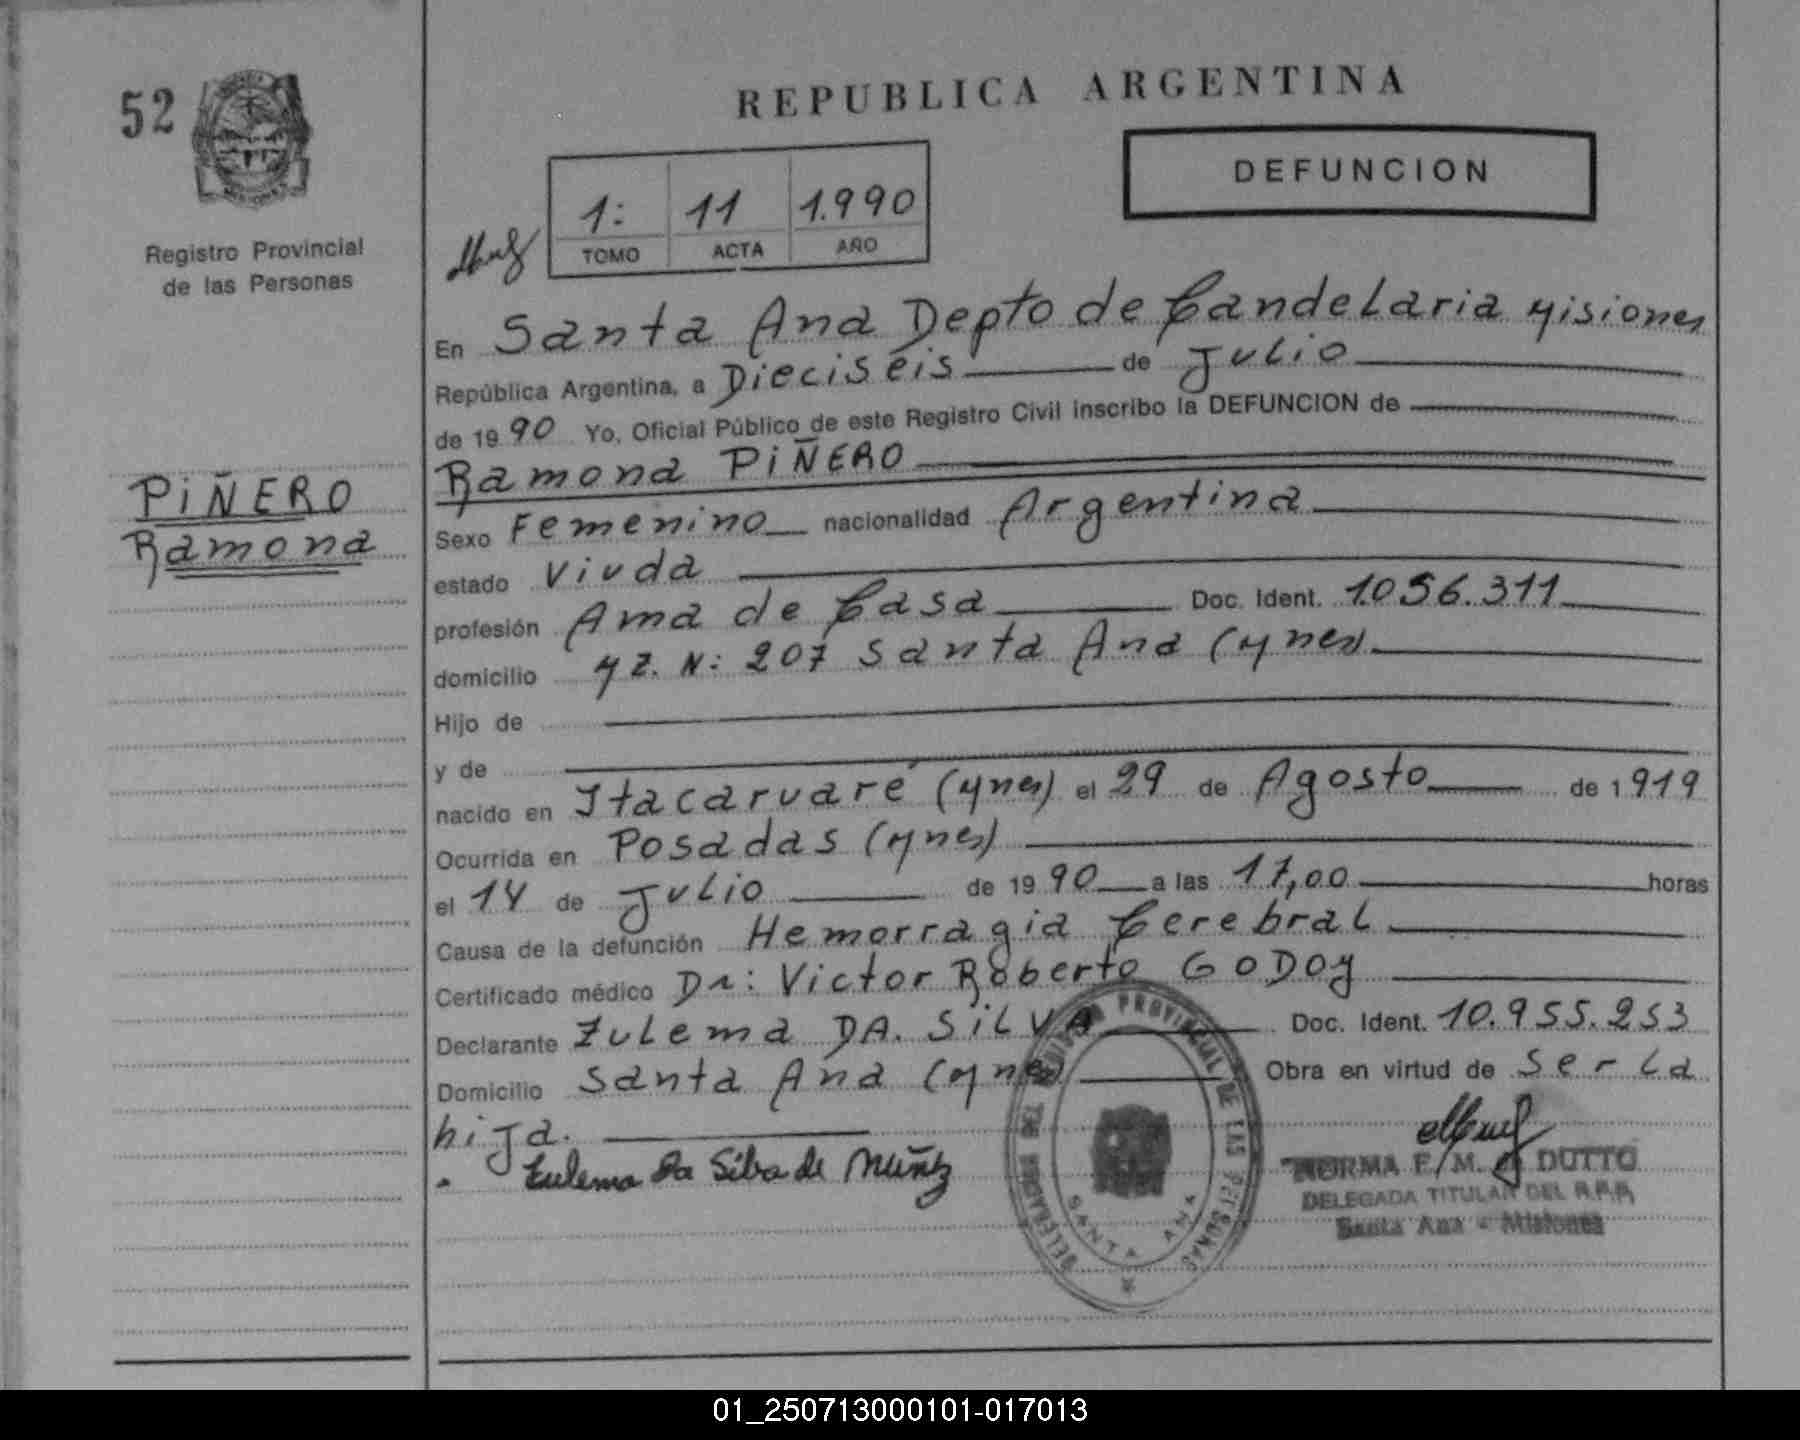 52
REPUBLICA ARGENTINA
DEFUNCION
1: 11 1.990
TOMO ACTA AÑO
Registro Provincial
de las Personas
En Santa Ana Depto de Candelaria Misiones
República Argentina, a Dieciséis de Julio
de 1990 Yo, Oficial Público de este Registro Civil inscribo la DEFUNCION de
PIÑERO
Ramona
Ramona PIÑERO
Sexo Femenino nacionalidad Argentina
estado Viuda
profesión Ama de Casa Doc. Ident. 1.056.311
domicilio MZ. N: 207 Santa Ana (Mnes)
Hijo de
y de
nacido en Itacaruaré (Mnes) el 29 de Agosto de 1919
Ocurrida en Posadas (Mnes)
el 14 de Julio de 1990 a las 17,00 horas
Causa de la defunción Hemorragia Cerebral
Certificado médico Dr: Victor Roberto GODOY
Declarante Zulema DA. SILVA Doc. Ident. 10.955.253
Domicilio Santa Ana (Mnes) Obra en virtud de Ser La
hija.
Zulema Da Silva de Muñiz
NORMA F. M. DUTTO
DELEGADA TITULAR DEL R.P.P.
Santa Ana - Misiones
PROVINCIAL DE LAS PERSONAS
SANTA ANA
01_250713000101-017013